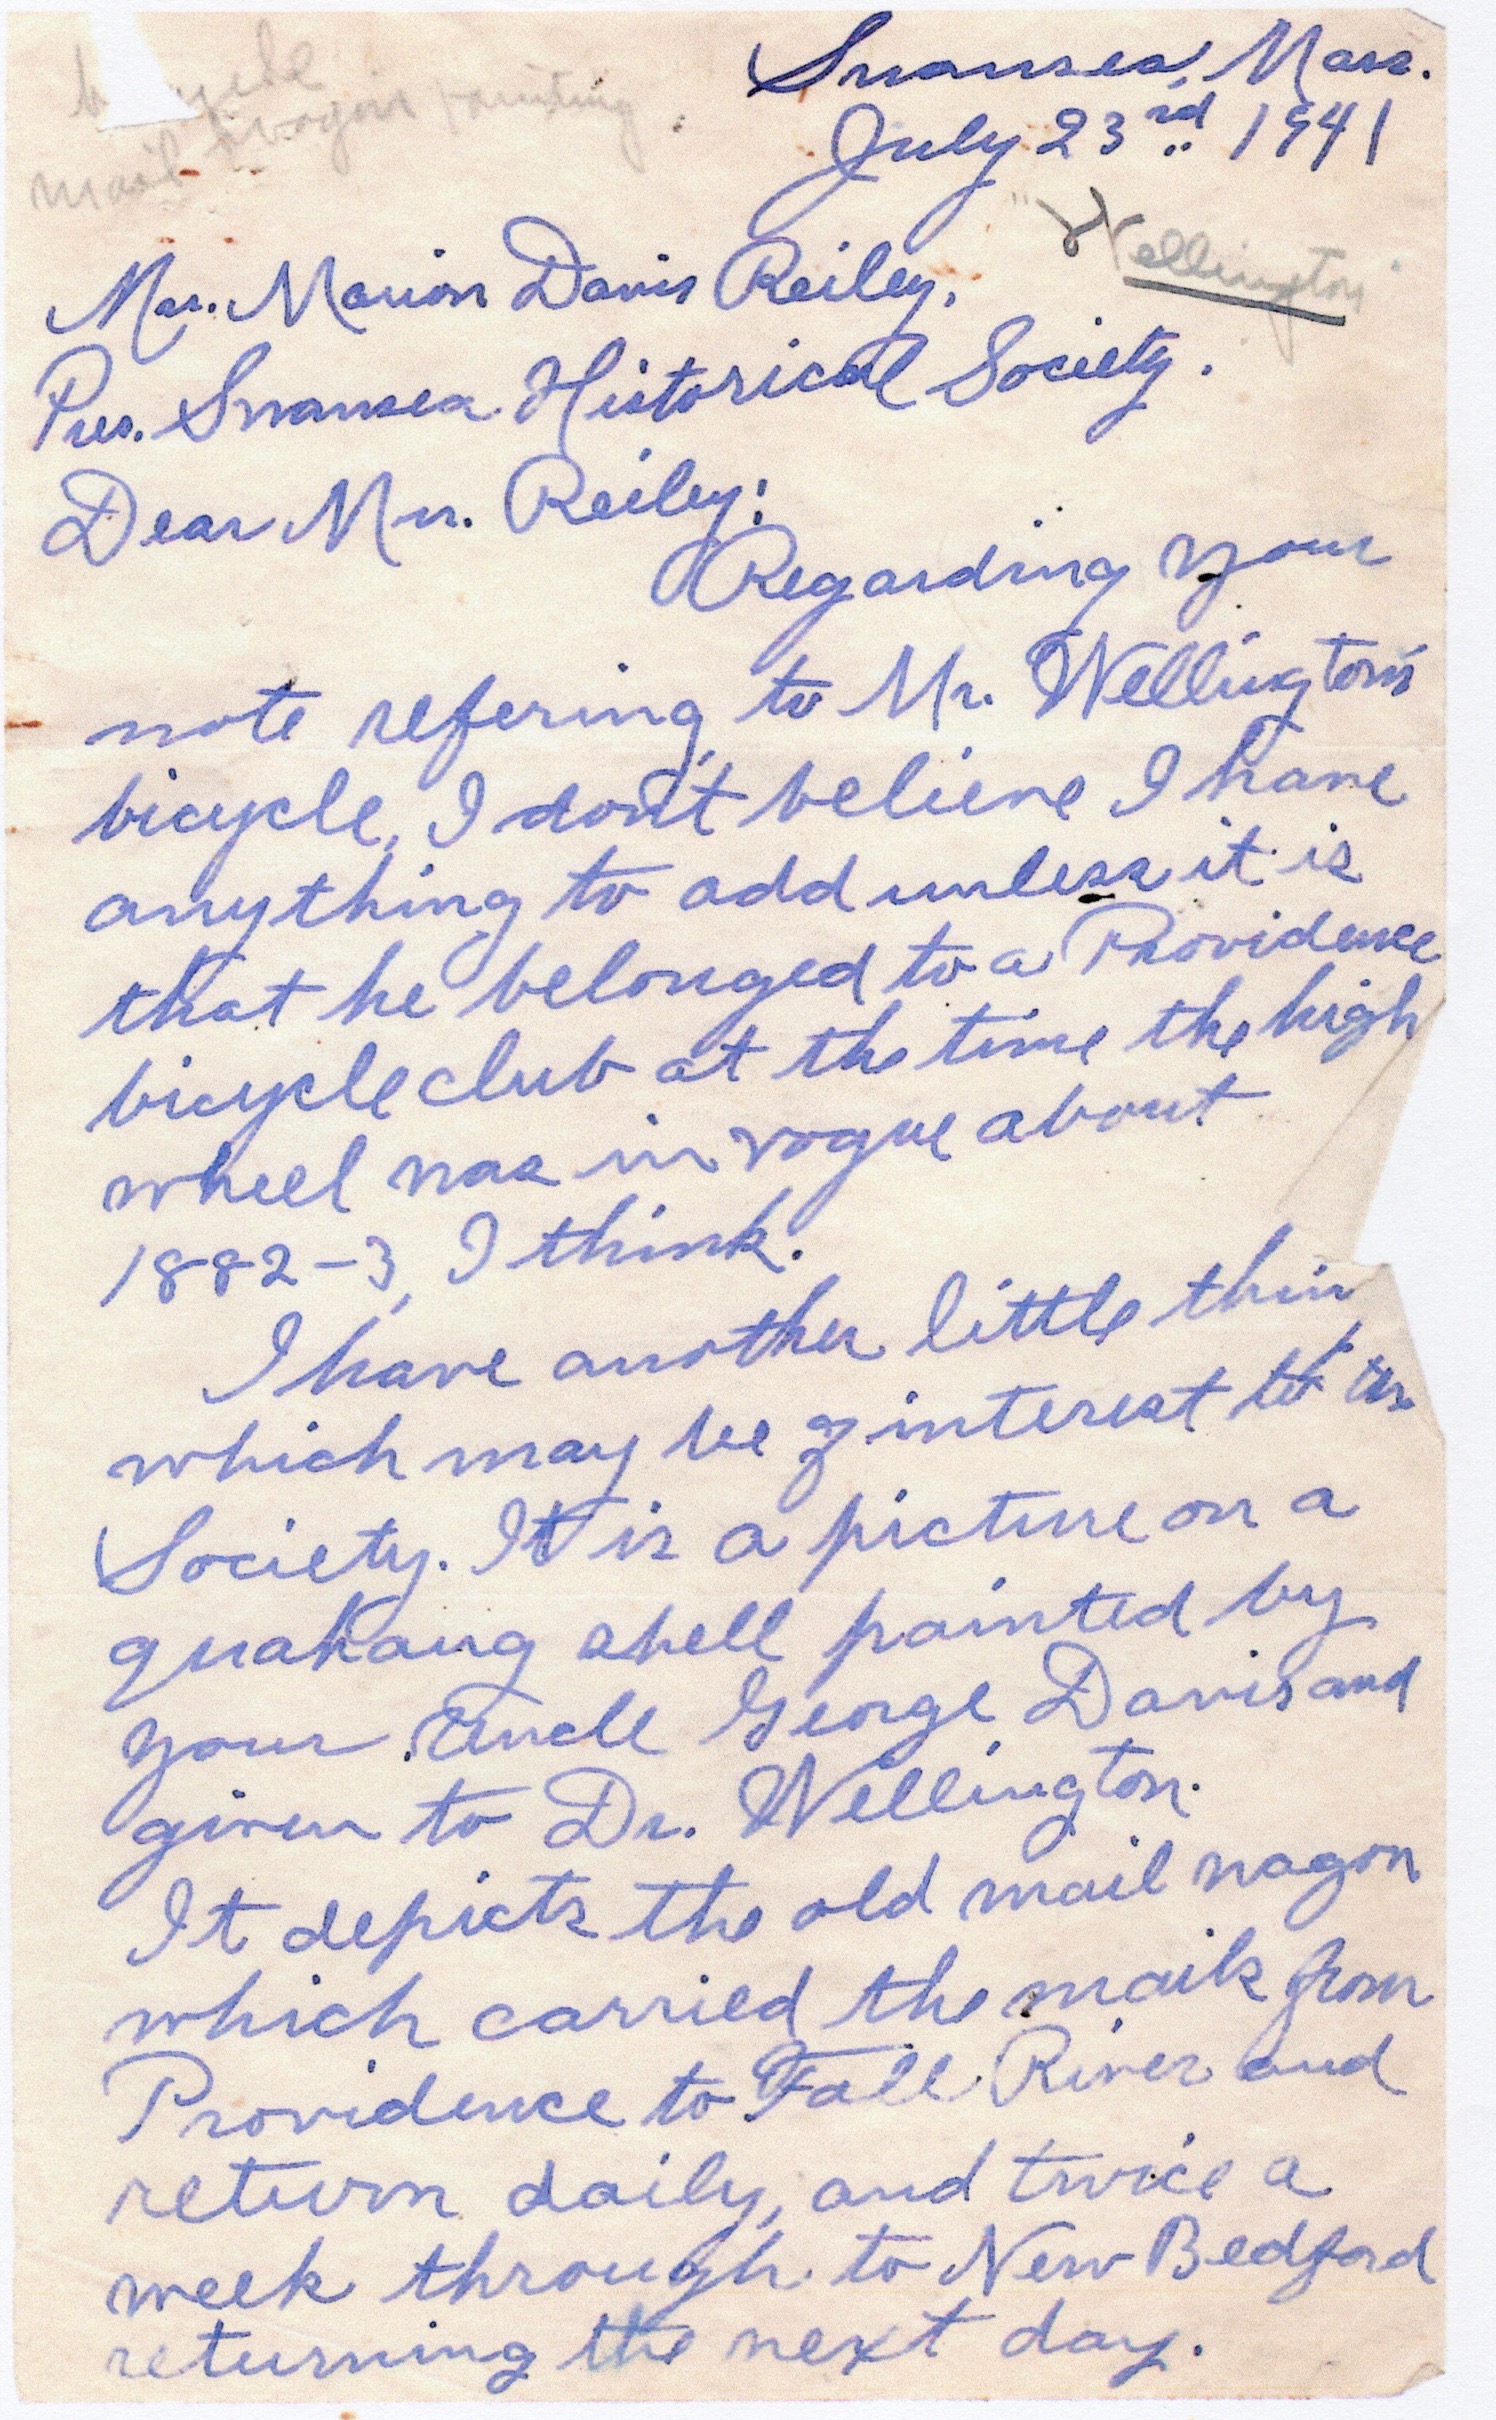 mail wagon painting
Swansea, Mass.
July 23rd 1941
"Wellington"
Mrs. Marion Davis Reiley,
Pres. Swansea Historical Society.
Dear Mrs. Reiley:
Regarding your
note refering to Mr. Wellington's
bicycle, I don't believe I have
anything to add unless it is
that he belonged to a Providence
bicycle club at the time the high
wheel was in vogue about
1882-3, I think.
I have another little thin
which may be of interest to the
Society. It is a picture on a
quahaug shell painted by
your Uncle George Davis and
given to Dr. Wellington.
It depicts the old mail wagon
which carried the mails from
Providence to Fall River and
return daily, and twice a
week through to New Bedford
returning the next day.